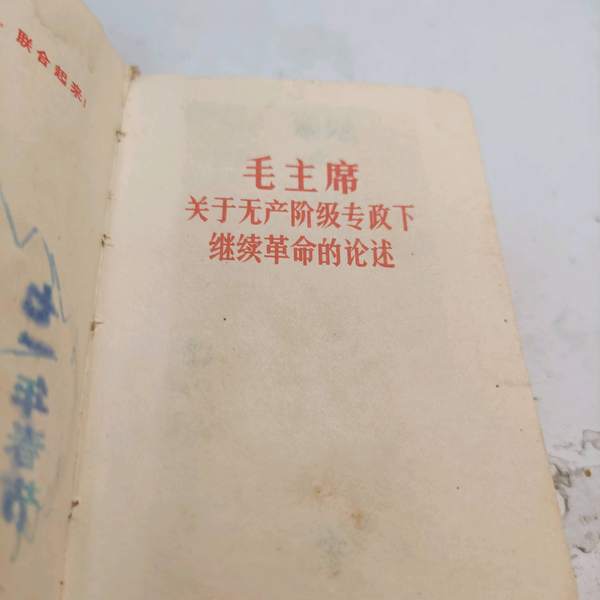 联合起来!
毛主席
关于无产阶级专政下
继续革命的论述
年春节